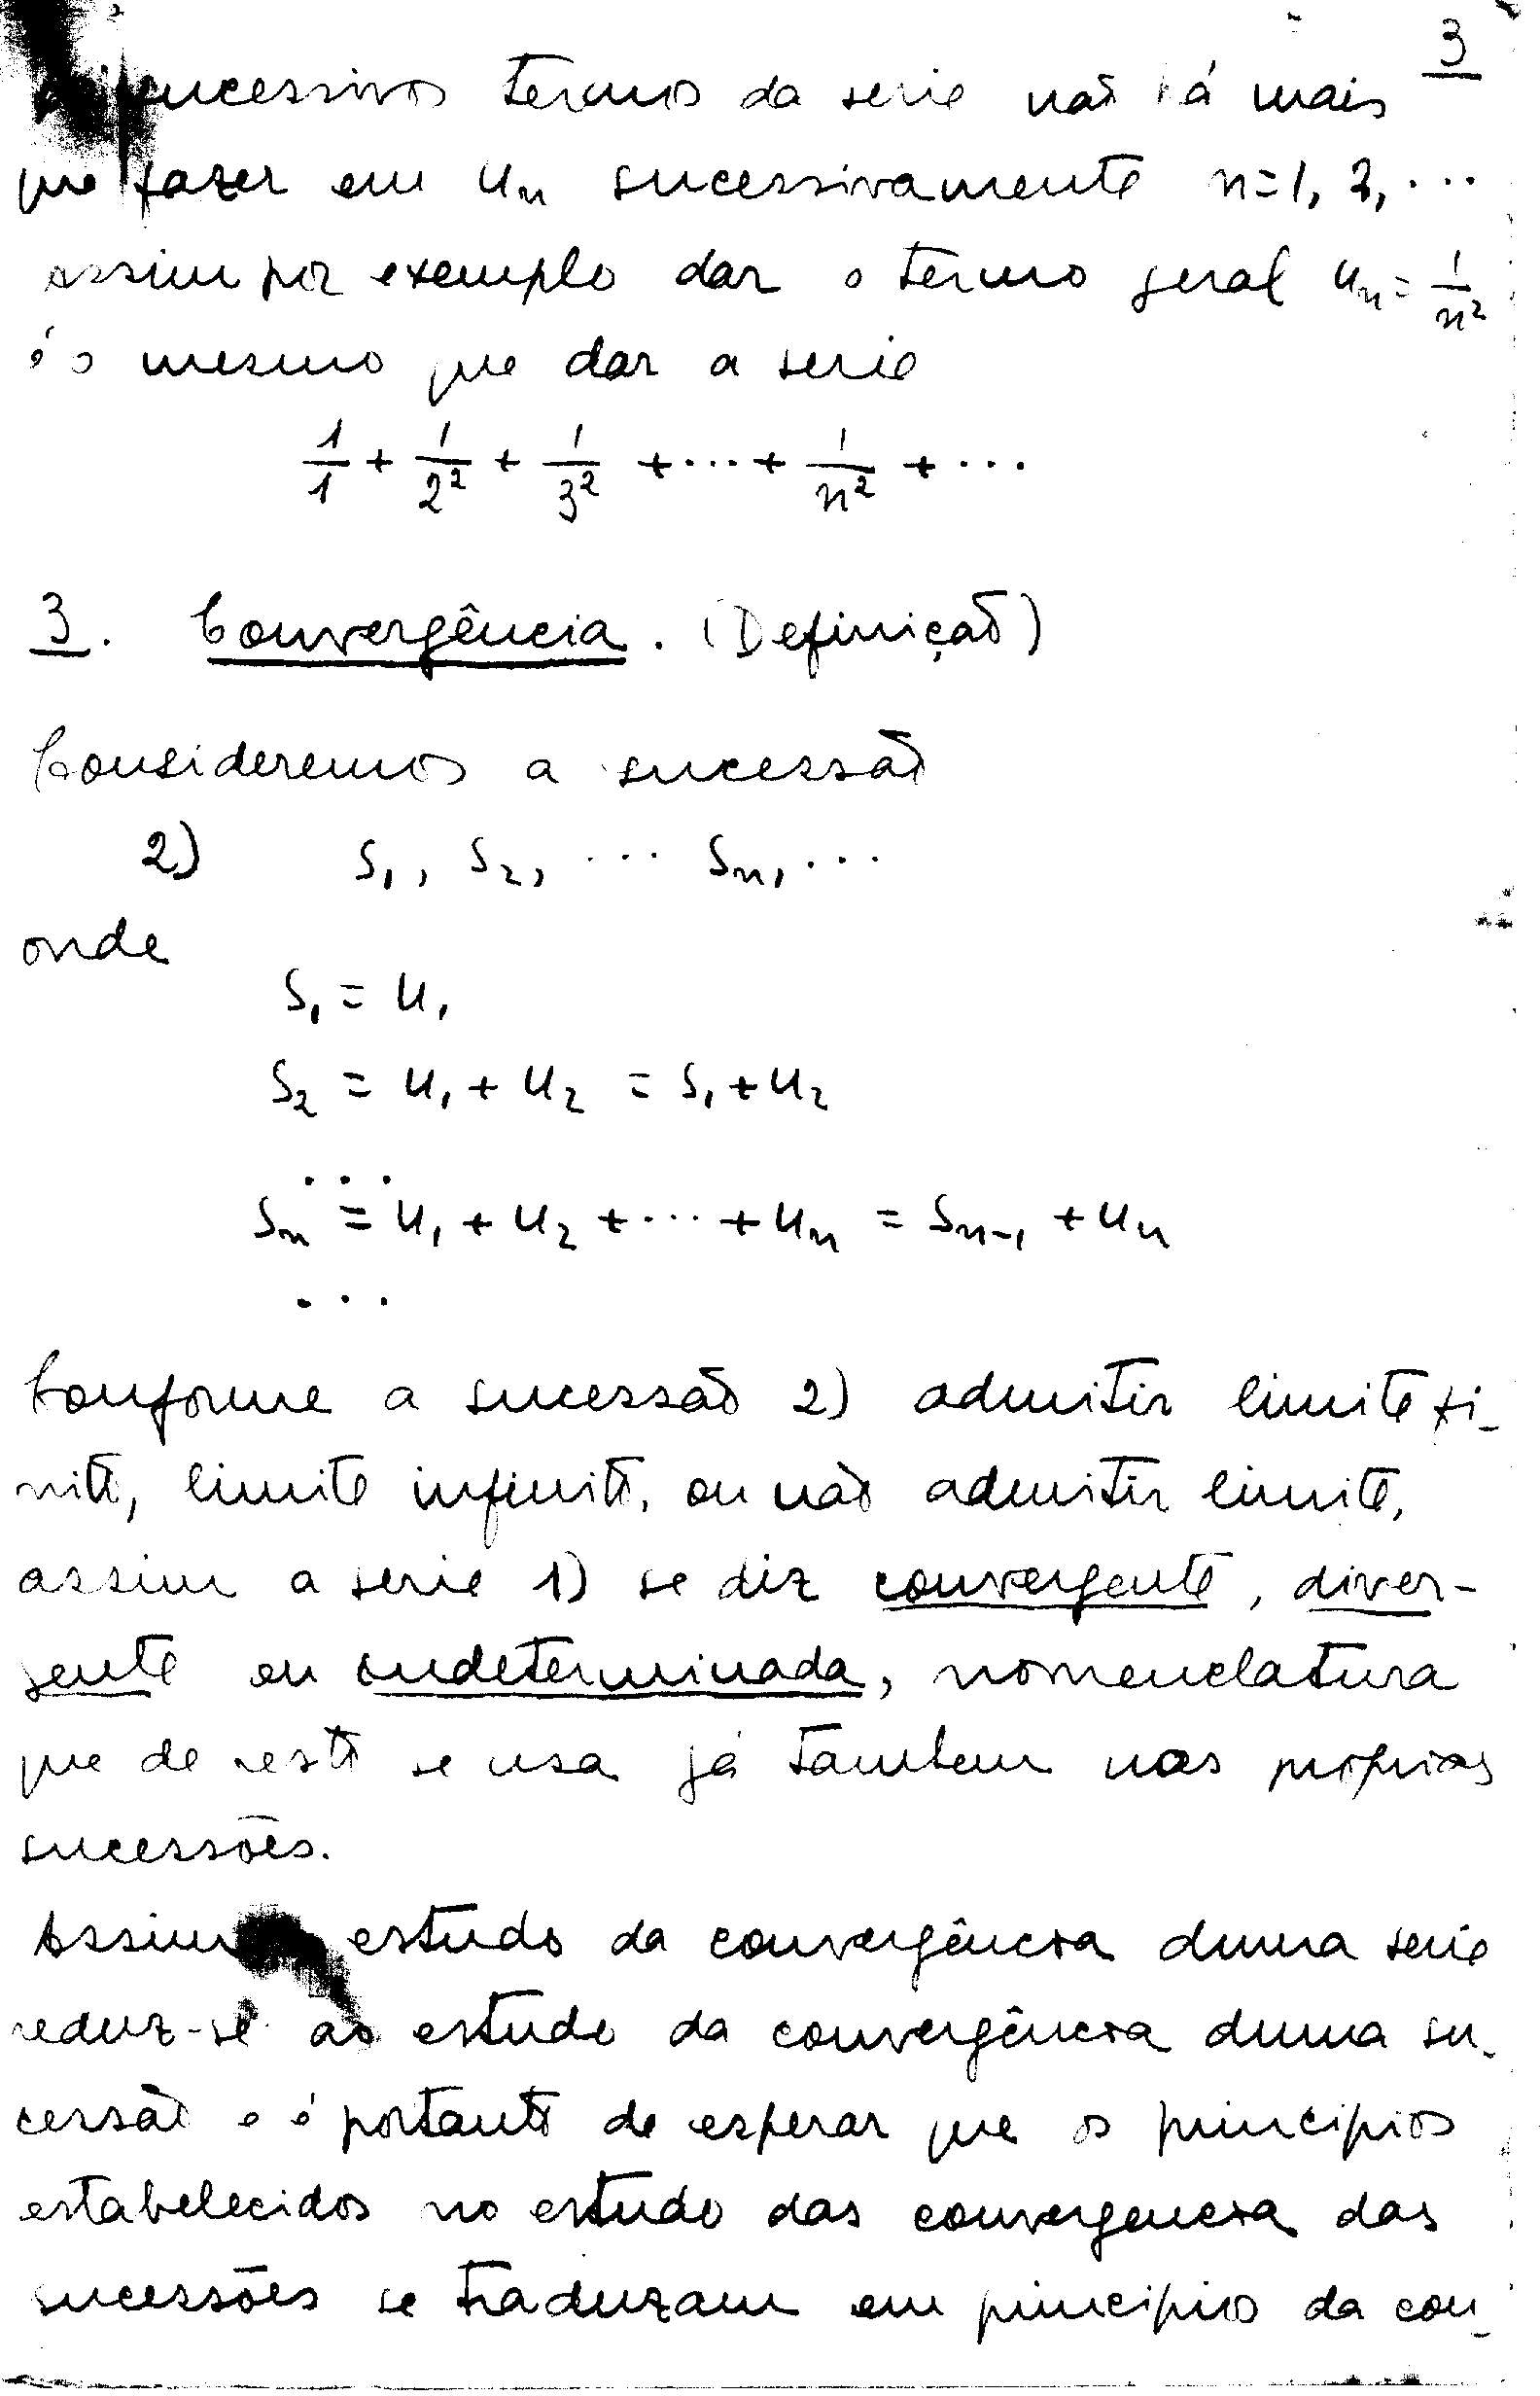 3
sucessivos termos da serie não há mais
que fazer em uₙ sucessivamente n=1, 2, ...
assim por exemplo dar o termo geral uₙ = 1/n²
é o mesmo que dar a serie
1/1 + 1/2² + 1/3² + ... + 1/n² + ...
3. Convergência. (Definição)
Consideremos a sucessão
2) S₁, S₂, ... Sₙ, ...
onde
S₁ = u₁
S₂ = u₁ + u₂ = S₁ + u₂
...
Sₙ = u₁ + u₂ + ... + uₙ = Sₙ₋₁ + uₙ
...
Conforme a sucessão 2) admitir limite fi-
nito, limite infinito, ou não admitir limite,
assim a serie 1) se diz convergente, diver-
gente ou indeterminada, nomenclatura
que de resto se usa já tambem nas proprias
sucessões.
Assim estudo da convergência duma serie
reduz-se ao estudo da convergência duma su-
cessão e é portanto de esperar que os principios
estabelecidos no estudo das convergencia das
sucessões se traduzam em principios da con-